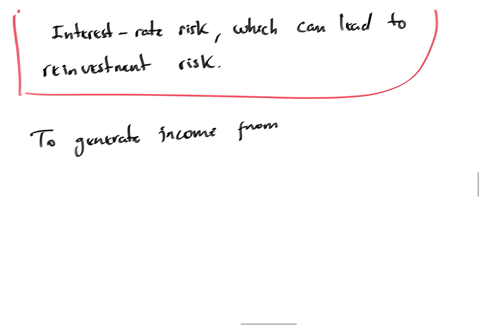 Interest-rate risk, which can lead to
reinvestment risk.
To generate income from